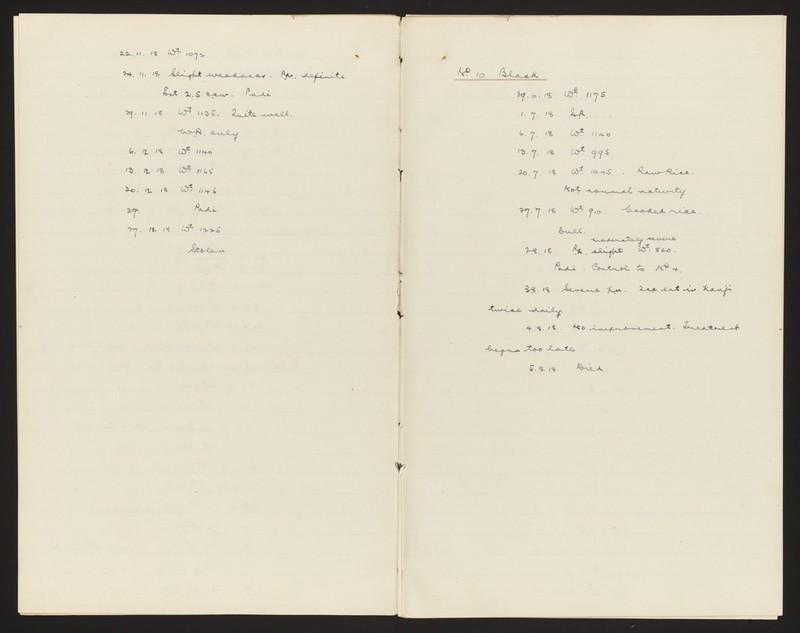 22.11.18 Wt 1092
24.11.18 Slight weakness. Px. definite
Ext 2.5 c.c.w. Padi
29.11.18 Wt 1135. Quite well.
W.R. only
6.12.18 Wt 1140
13.12.18 Wt 1165
20.12.18 Wt 1145
24. Padi
27.12.18 Wt 1225
Stolen
No 10 Black
29.6.18 Wt 1175
1.7.18
6.7.18 Wt 1140
13.7.18 Wt 995
20.7.18 Wt 1045. Raw Rice.
Not normal activity
27.7.18 Wt 910. Cooked rice.
Dull.
moderately severe
2.8.18 Px. slight Wt 860.
Padi. Control to No 4.
3.8.18 Severe Px. ext in Kanji
twice daily
4.8.18. No improvement. Treatment
begun too late
5.8.18 Died